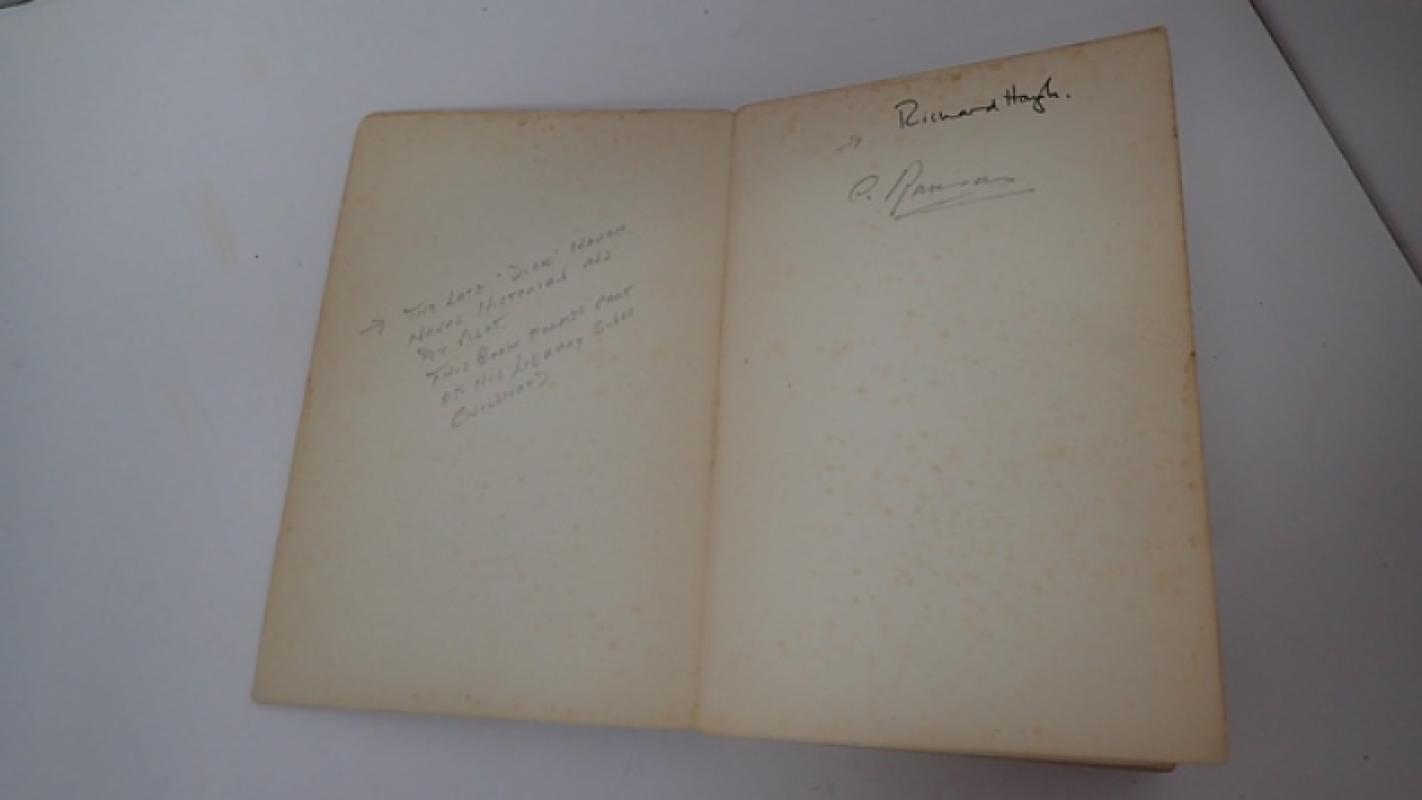 → THE LATE, 'DICK' HOUGH.
NAVAL HISTORIAN AND
PILOT.
THIS BOOK FORMED PART
OF HIS LIBRARY SINCE
CHILDHOOD.
Richard Hough.
→